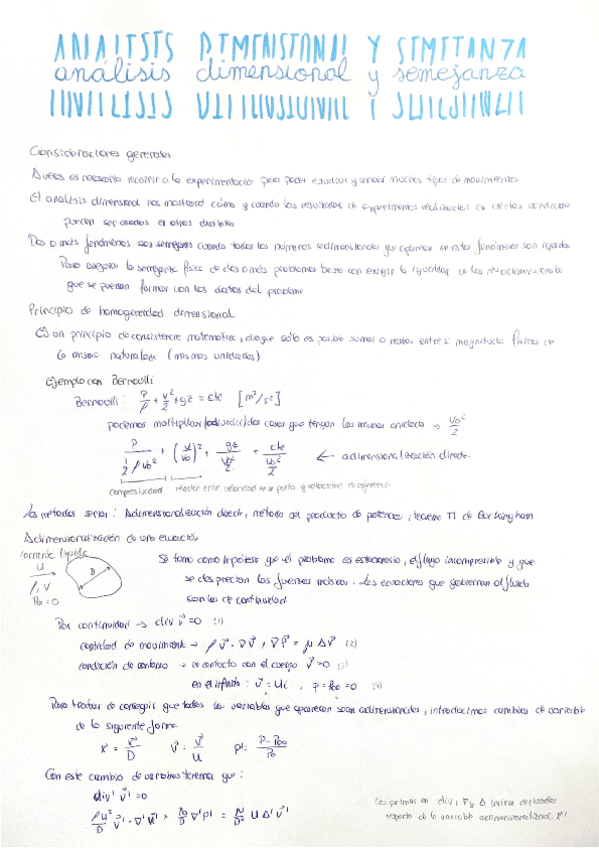 análisis dimensional y semejanza
Consideraciones generales
A veces es necesario recurrir a la experimentación para poder estudiar y conocer muchos tipos de movimientos
El análisis dimensional nos mostrará cómo y cuando los resultados de experimentos realizados en ciertas condiciones
pueden ser usados en otras distintas
Dos o más fenómenos son semejantes cuando todos los números adimensionales que aparecen en estos fenómenos son iguales
Para asegurar la semejanza física de dos o más problemas basta con exigir la igualdad de los nº adimensionales
que se puedan formar con los datos del problema
Principio de homogeneidad dimensional
Es un principio de consistencia matemática, dice que sólo es posible sumar o restar entre sí magnitudes físicas de
la misma naturaleza (mismas unidades)
Ejemplo con Bernoulli
Bernoulli: P/ρ + v²/2 + gz = cte [m²/s²]
podemos multiplicar/dividir dos cosas que tengan las mismas unidades → v₀²/2
P/(½ρv₀²) + (v/v₀)² + gz/(v₀²/2) = cte/(v₀²/2) ← adimensionalización directa
compresividad relación entre velocidad en un punto y velocidad de referencia
Los métodos serían: Adimensionalización directa, método del producto de potencias, teorema Π de Buckingham
Adimensionalización de una ecuación
corriente líquida
U
D
ρ, V
P∞ = 0
Se toma como hipótesis que el problema es estacionario, el flujo incompresible y que
se desprecian las fuerzas másicas. Las ecuaciones que gobiernan al fluido
son las de continuidad.
Por continuidad → div v⃗ = 0 (1)
cantidad de movimiento → ρ v⃗ · ∇v⃗ + ∇P = μ Δv⃗ (2)
condición de contorno → en contacto con el cuerpo v⃗ = 0 (3)
en el infinito: v⃗ = Ui, P = P∞ = 0 (4)
Para tratar de conseguir que todas las variables que aparecen sean adimensionales, introducimos cambios de variable
de la siguiente forma
x' = x⃗/D v⃗' = v⃗/U p' = (P-P∞)/P₀
Con este cambio de variables tenemos que:
div' v⃗' = 0
ρU²/D v⃗' · ∇'v⃗' + P₀/D ∇'p' = μ/D² U Δ'v⃗'
Las primas en div, ∇ y Δ indican derivadas
respecto de la variable adimensionalizada x'